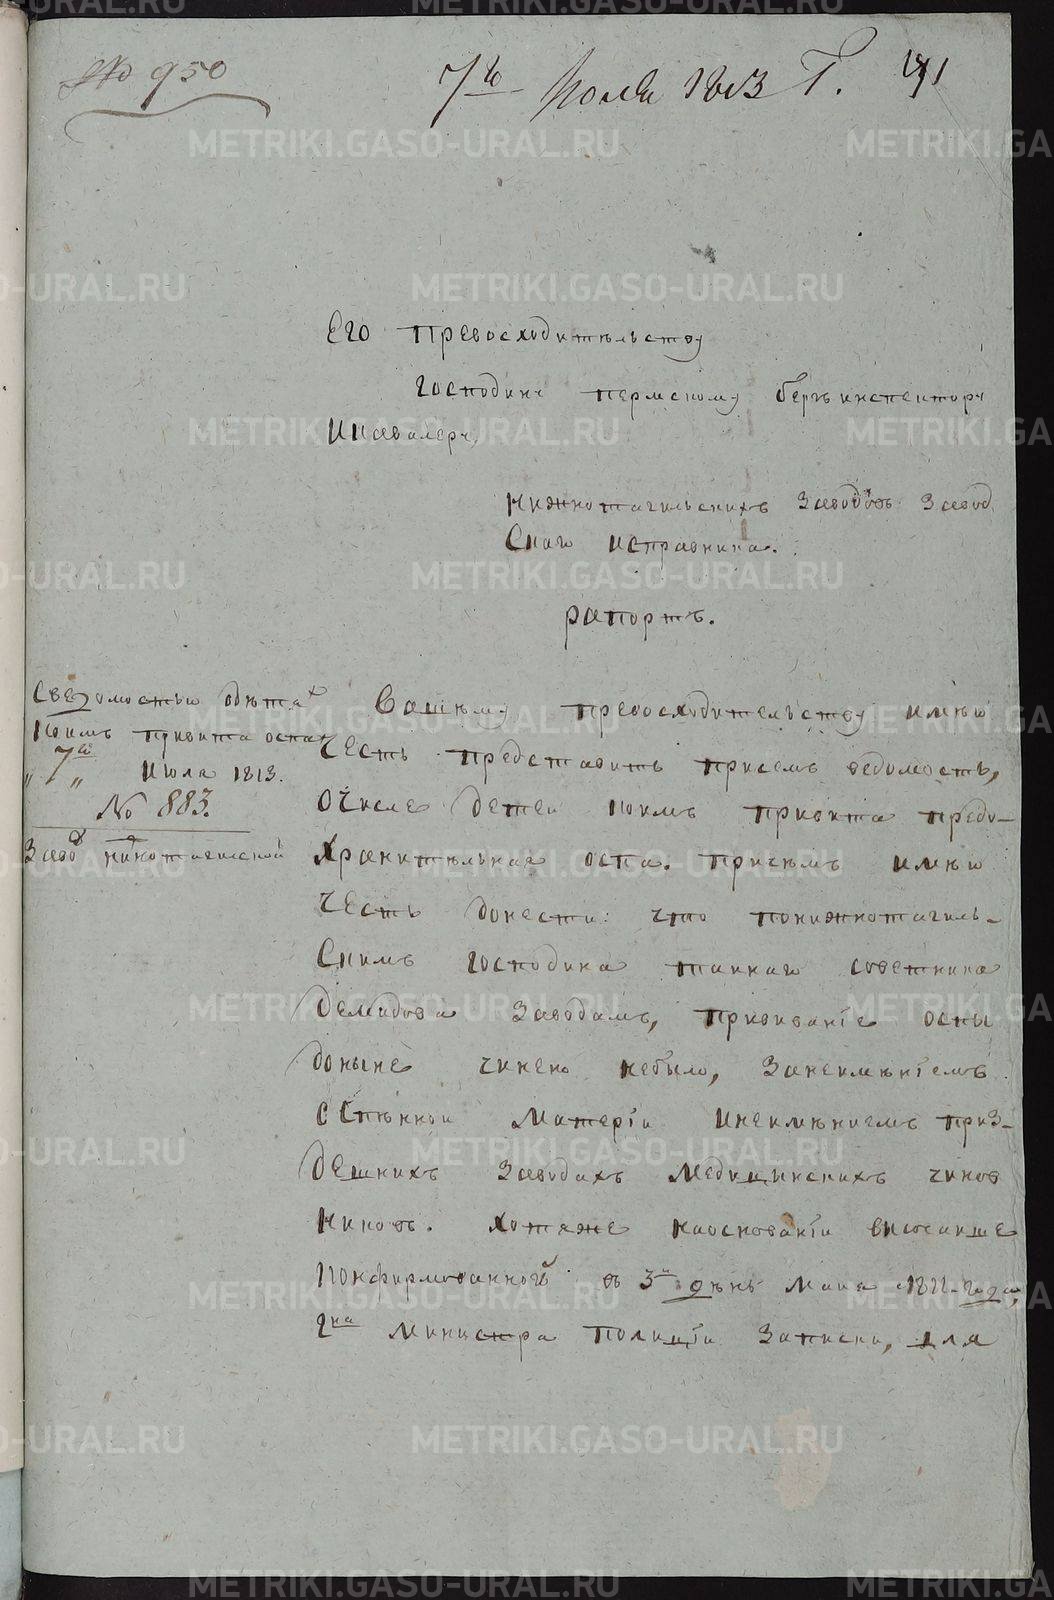 № 950
7го Июля 1813 Г.
Его превосходительству
господину пермскому бергъ инспектору
И кавалеру,
Нижнотагильскихъ заводовъ завод
Скаго исправника.
рапортъ.
Сведомостью одѣтях
Коимъ привита оспа
7го Июля 1813.
№ 883.
завод нижнотагилской
Вашему превосходительству имѣю
Честь представить присемъ ведомость,
Очисле детей коимъ привита предо-
хранительная оспа. присемъ имѣю
Честь донести: что понижнотагиль-
Скимъ господина тайнаго советника
Демидова заводамъ, прививанiе оспы
доныне чинено небыло, занеимѣнiемъ
Оспѣнной матерiи инеимѣниемъ приз-
Дешнихъ заводахъ медицинскихъ чинов
никовъ. хотяже наоснованiи высочайше
Конфирмованной въ 3й дѣнь маия 1811 года,
гна министра полицiи записки, для
METRIKI.GASO-URAL.RU